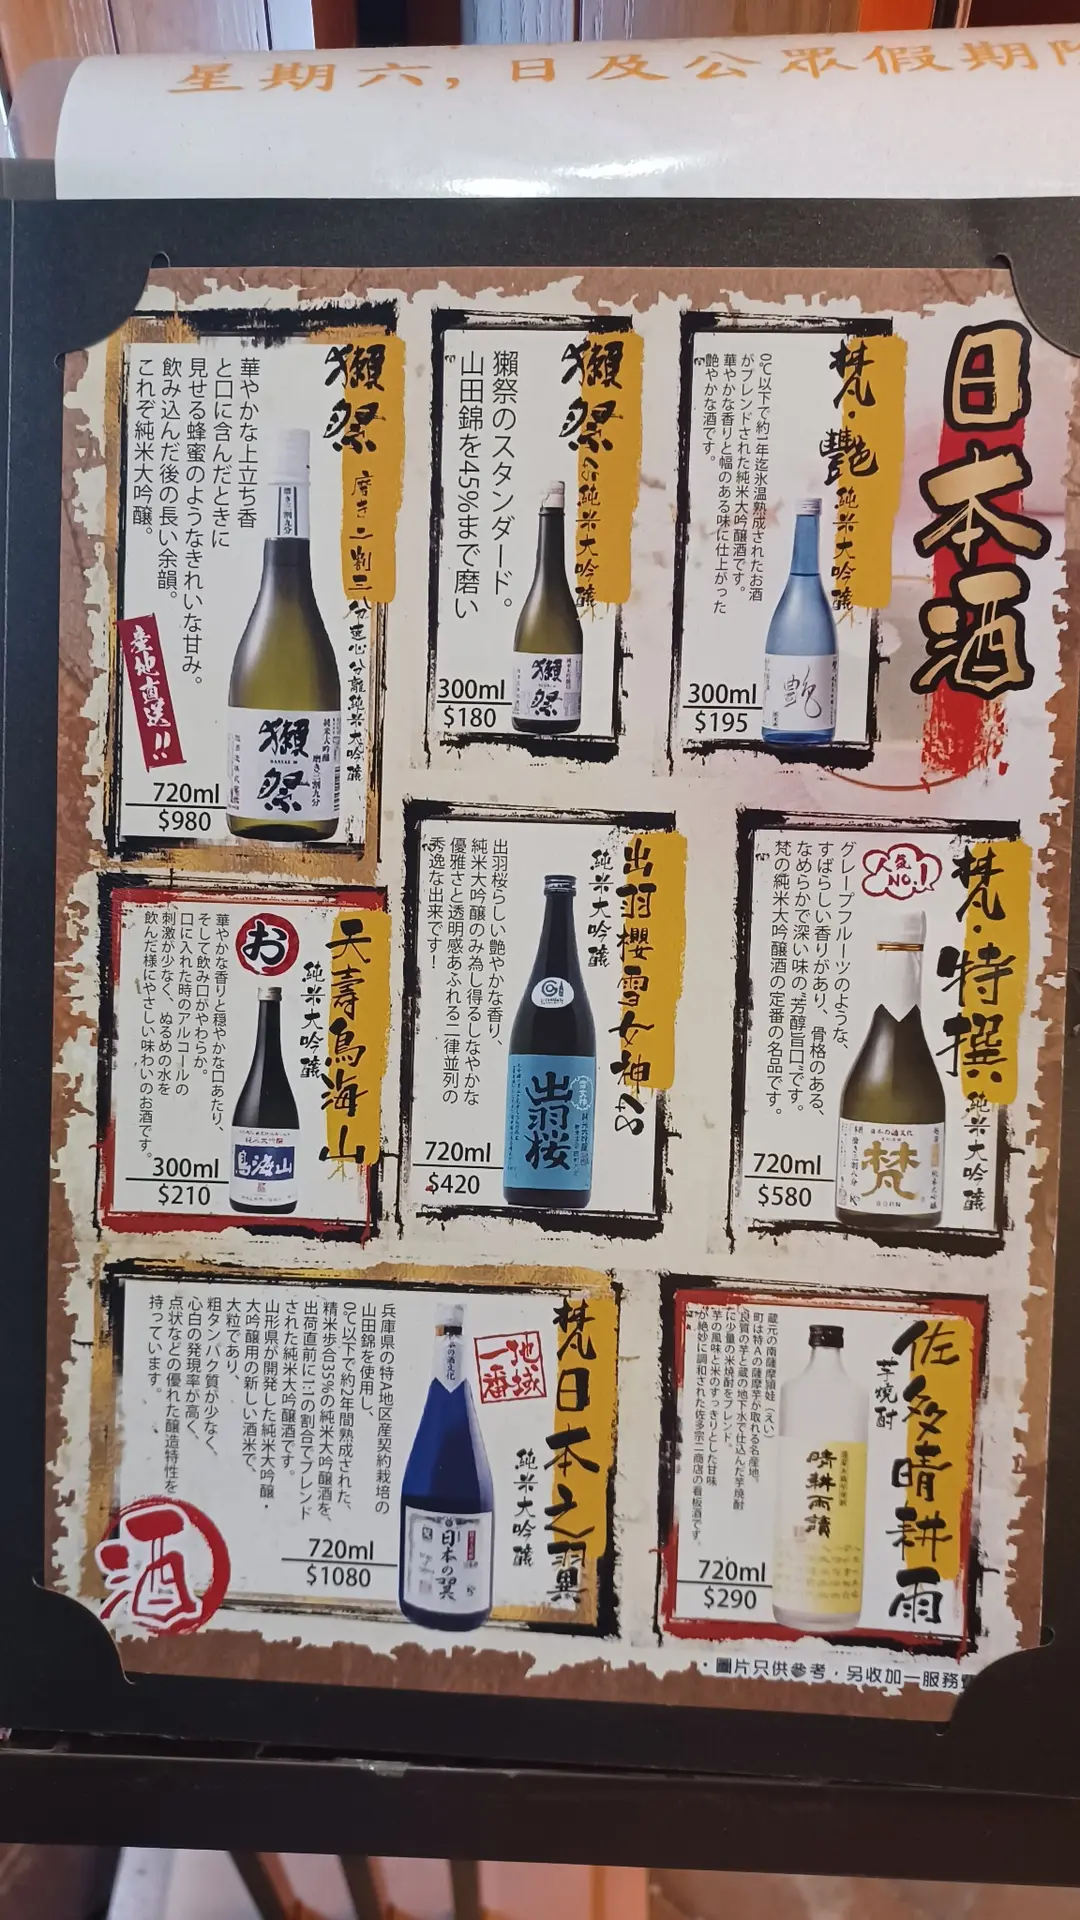 星期六，日及公眾假期
日本酒
梵・艷
純米大吟釀
0℃以下で約1年迄氷温熟成されたお酒
がブレンドされた純米大吟醸酒です。
華やかな香りと幅のある味に仕上がった
艶やかな酒です。
300ml
$195
艶
獺祭
純米大吟釀
獺祭のスタンダード。
山田錦を45%まで磨い
300ml
$180
獺祭
獺祭
磨き二割三分遠心分離純米大吟釀
華やかな上立ち香
と口に含んだときに
見せる蜂蜜のようなきれいな甘み。
飲み込んだ後の長い余韻。
これぞ純米大吟醸。
産地直送!!
720ml
$980
磨き三割九分
獺祭
純米大吟醸
磨き三割九分
梵・特撰
純米大吟釀
人気NO.1
グレープフルーツのような、
すばらしい香りがあり、骨格のある、
なめらかで深い味の“芳醇旨口”です。
梵の純米大吟醸酒の定番の名品です。
720ml
$580
日本の酒文化
梵
BORN
出羽櫻雪女神48
純米大吟釀
出羽桜らしい艶やかな香り、
純米大吟醸のみ為し得るしなやかな
優雅さと透明感あふれる二律並列の
秀逸な出来です！
720ml
$420
出羽桜
天壽鳥海山
純米大吟釀
お
華やかな香りと穏やかな口あたり、
そして飲み口がやわらか。
口に入れた時のアルコールの
刺激が少なく、ぬるめの水を
飲んだ様にやさしい味わいのお酒です。
300ml
$210
純米大吟醸
鳥海山
佐多晴耕雨
芋焼酎
蔵元の南薩摩頴娃（えい）
町は特Aの薩摩芋が取れる名産地。
良質の芋と蔵の地下水で仕込んだ芋焼酎
に少量の米焼酎をブレンド。
芋の風味と米のすっきりとした甘味
が絶妙に調和された佐多宗二商店の看板酒です。
720ml
$290
晴耕雨讀
梵日本之翼
純米大吟釀
地域一番
兵庫県の特A地区産契約栽培の
山田錦を使用し、
0℃以下で約2年間熟成された、
精米歩合35%の純米大吟醸酒を、
出荷直前に1:1の割合でブレンド
された純米大吟醸酒です。
山形県が開発した純米大吟醸・
大吟醸用の新しい酒米で、
大粒であり、
粗タンパク質が少なく、
心白の発現率が高く、
点状などの優れた醸造特性を
持っています。
720ml
$1080
日本の翼
酒
・圖片只供參考，另收加一服務費